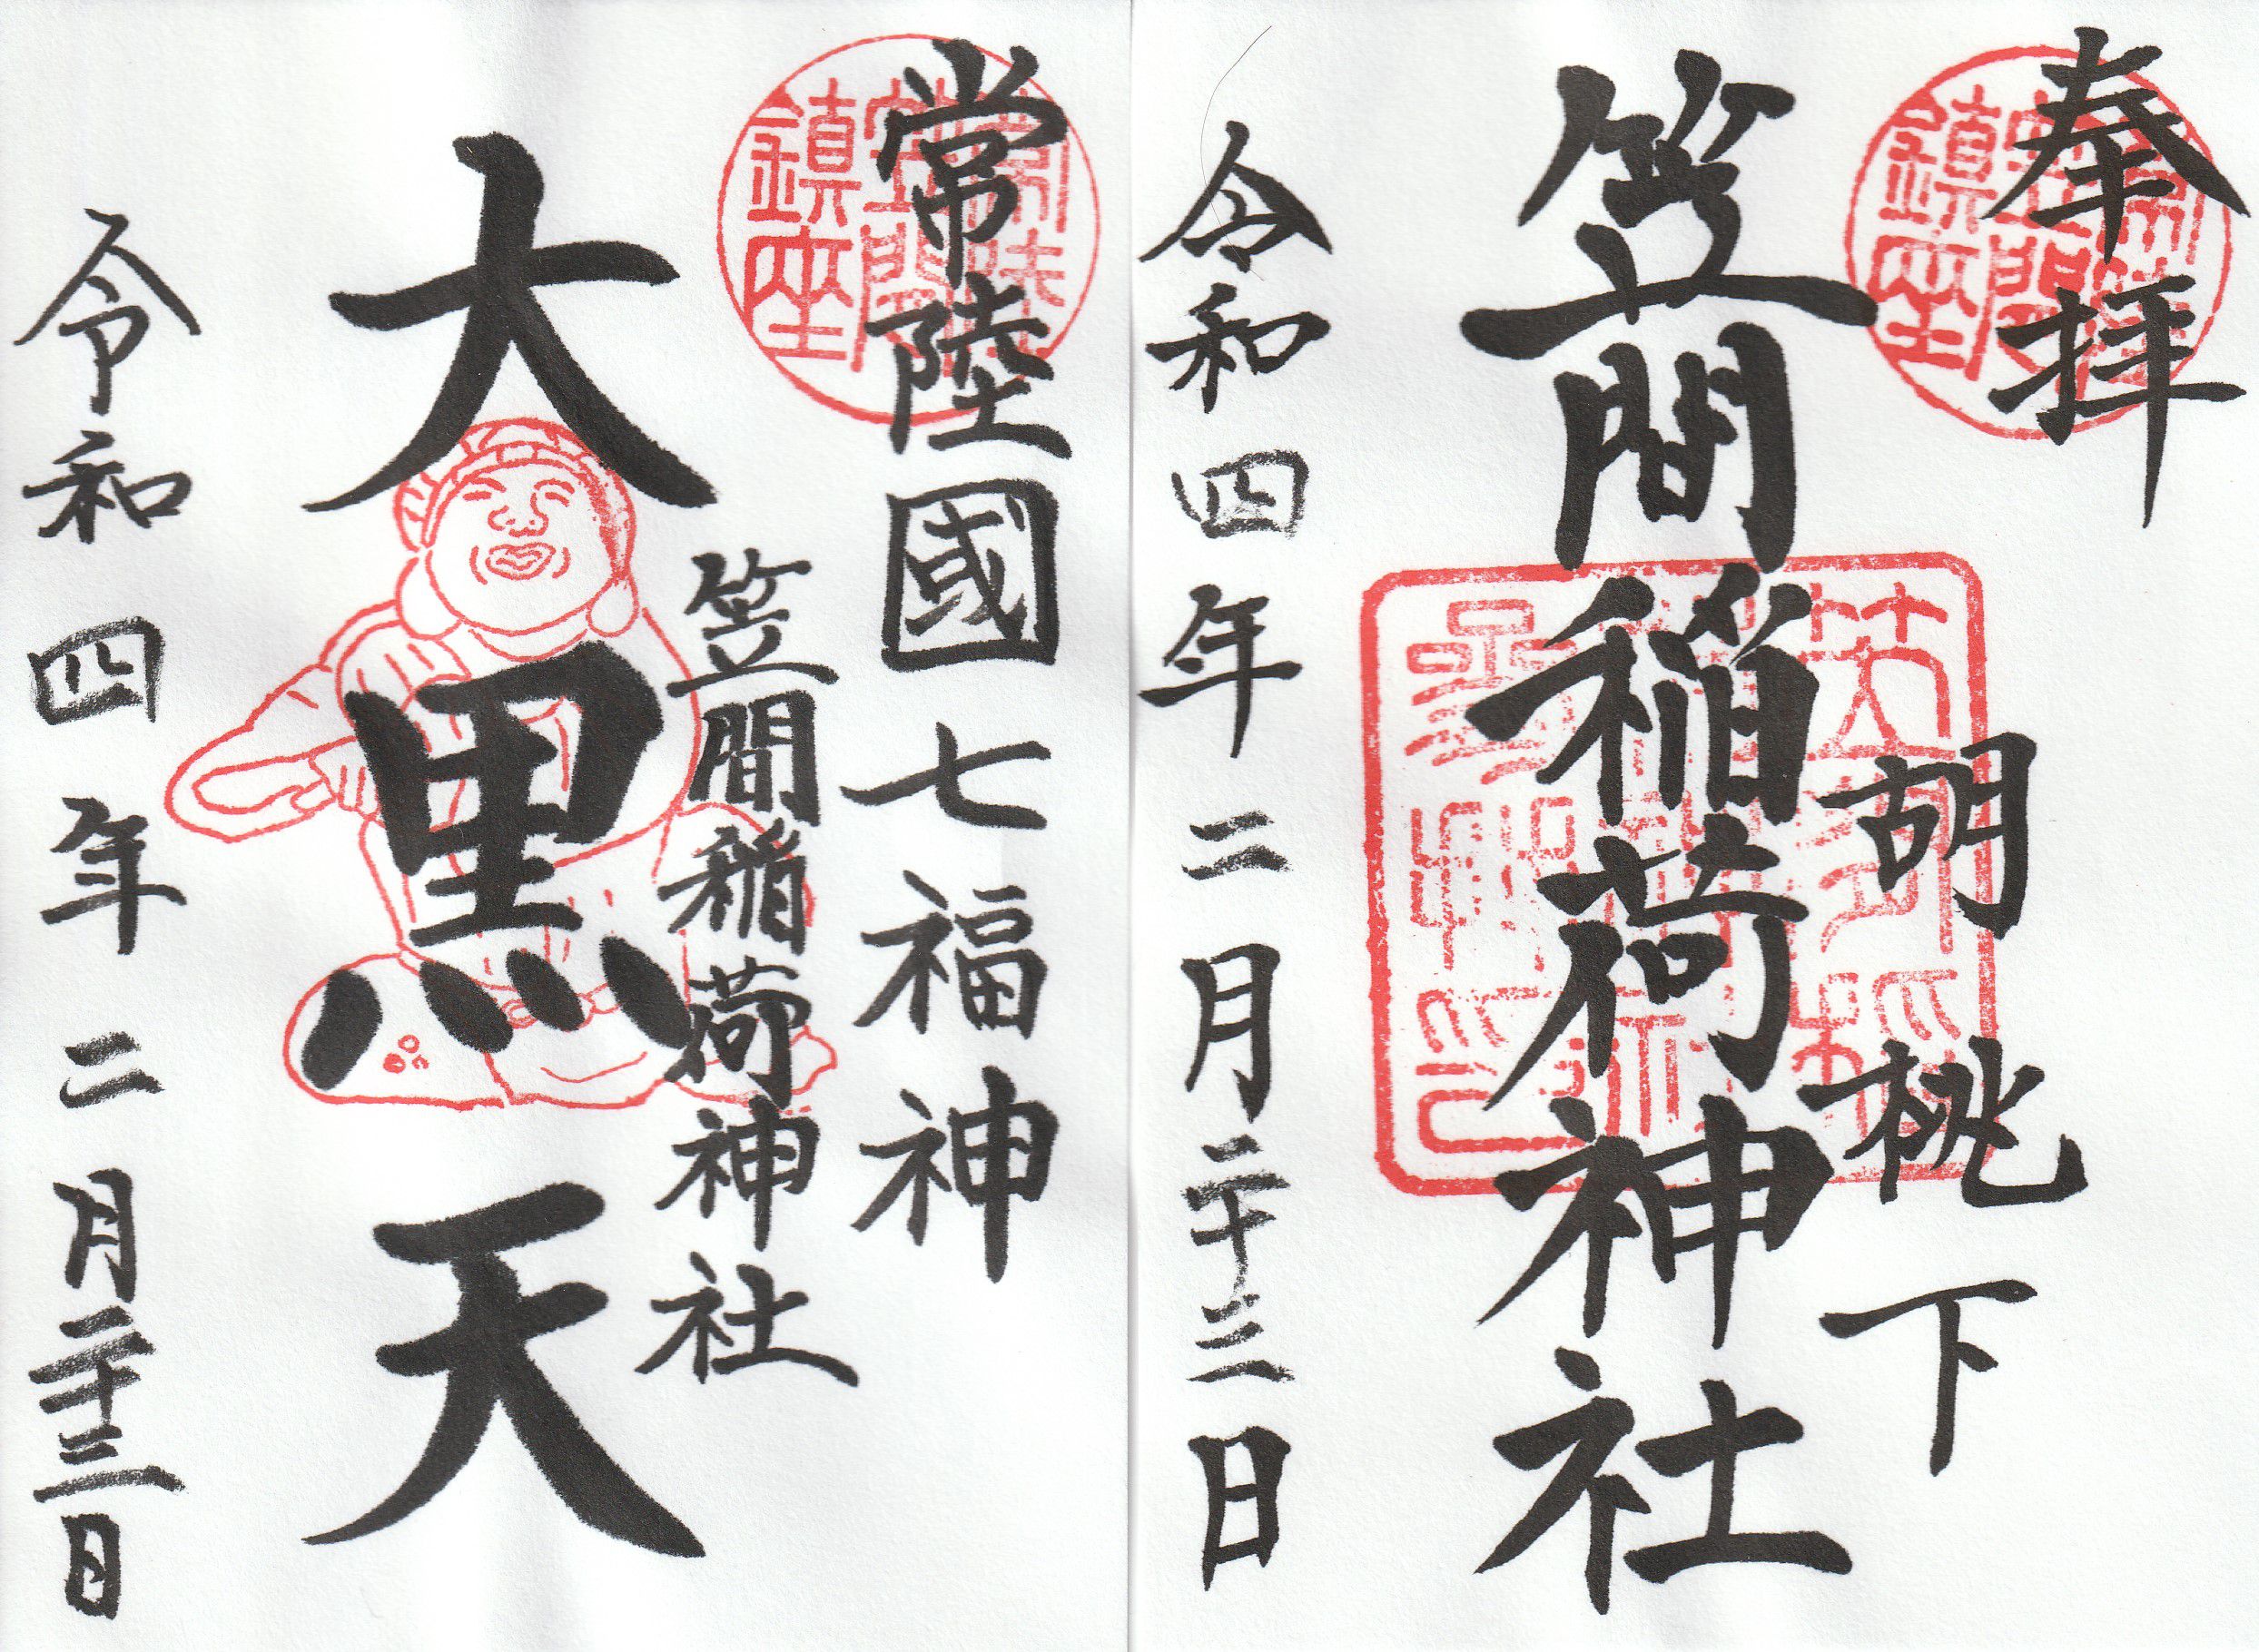 奉拝
胡桃下
笠間稲荷神社
令和四年二月二十三日
常陸國七福神
笠間稲荷神社
大黒天
令和四年二月二十三日
常陸
笠間
鎮座
常陸
笠間
鎮座